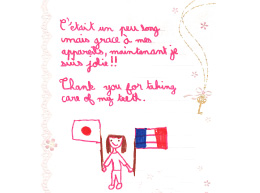 C'était un peu long
mais grace à mes
appareils, maintenant je
suis jolie!!
Thank you for taking
care of my teeth.